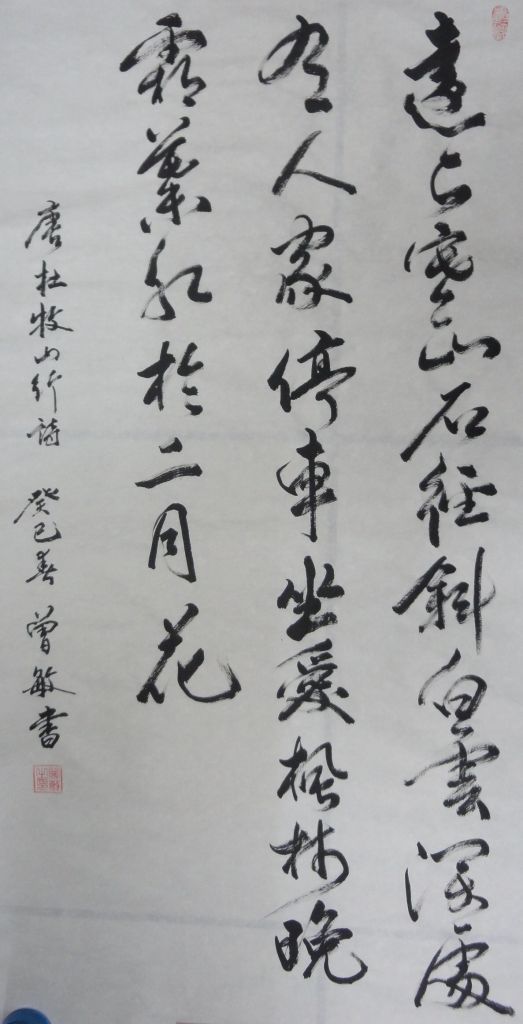 遠上寒山石徑斜白雲深處
有人家停車坐愛楓林晚
霜葉紅於二月花
唐杜牧山行詩 癸巳春 曾敏書